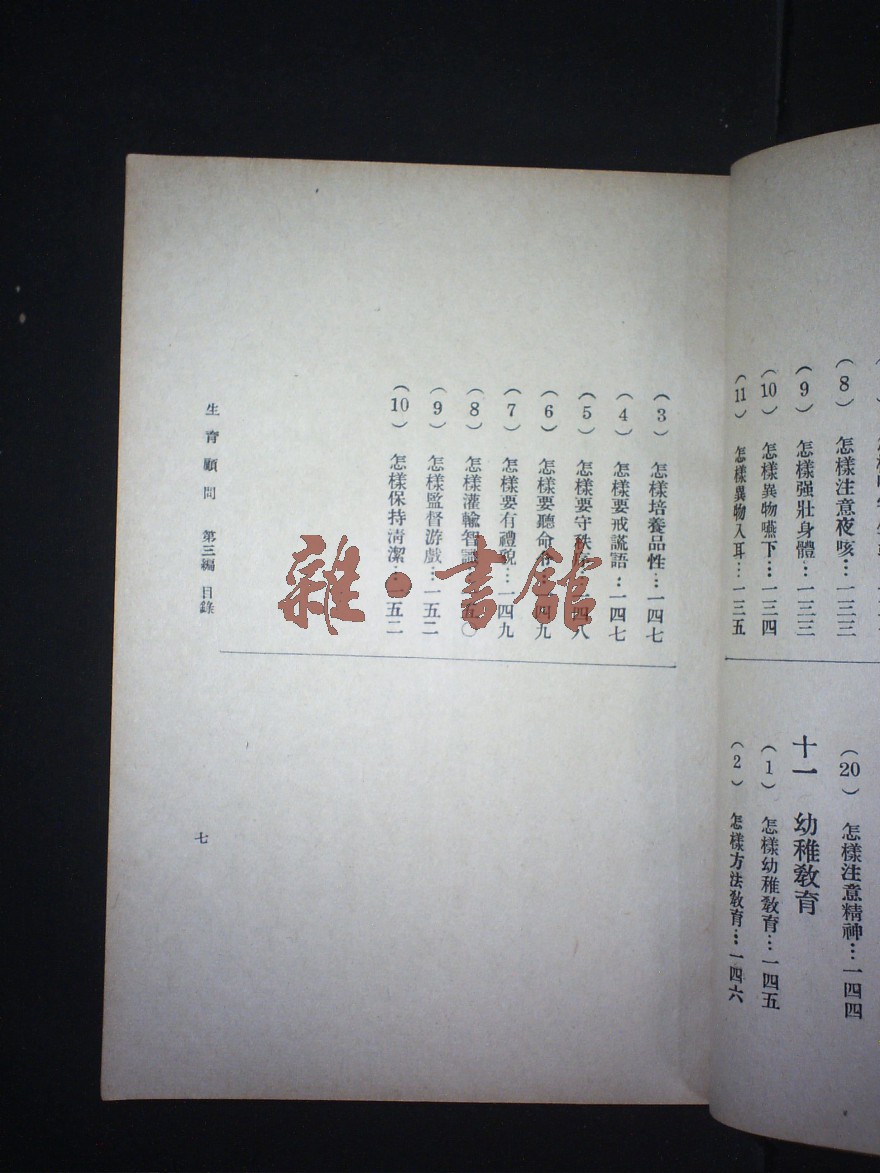 （8）　怎樣注意夜咳…一三三
（9）　怎樣强壯身體…一三三
（10）　怎樣異物嚥下…一三四
（11）　怎樣異物入耳…一三五
（20）　怎樣注意精神…一四四
十一　幼稚敎育
（1）　怎樣幼稚敎育…一四五
（2）　怎樣方法敎育…一四六
（3）　怎樣培養品性…一四七
（4）　怎樣要戒謊語…一四七
（5）　怎樣要守秩序…一四八
（6）　怎樣要聽命令…一四九
（7）　怎樣要有禮貌…一四九
（8）　怎樣灌輸智識…一五〇
（9）　怎樣監督游戲…一五二
（10）　怎樣保持淸潔…一五二
生育顧問　第三編　目錄
七
雜·書館